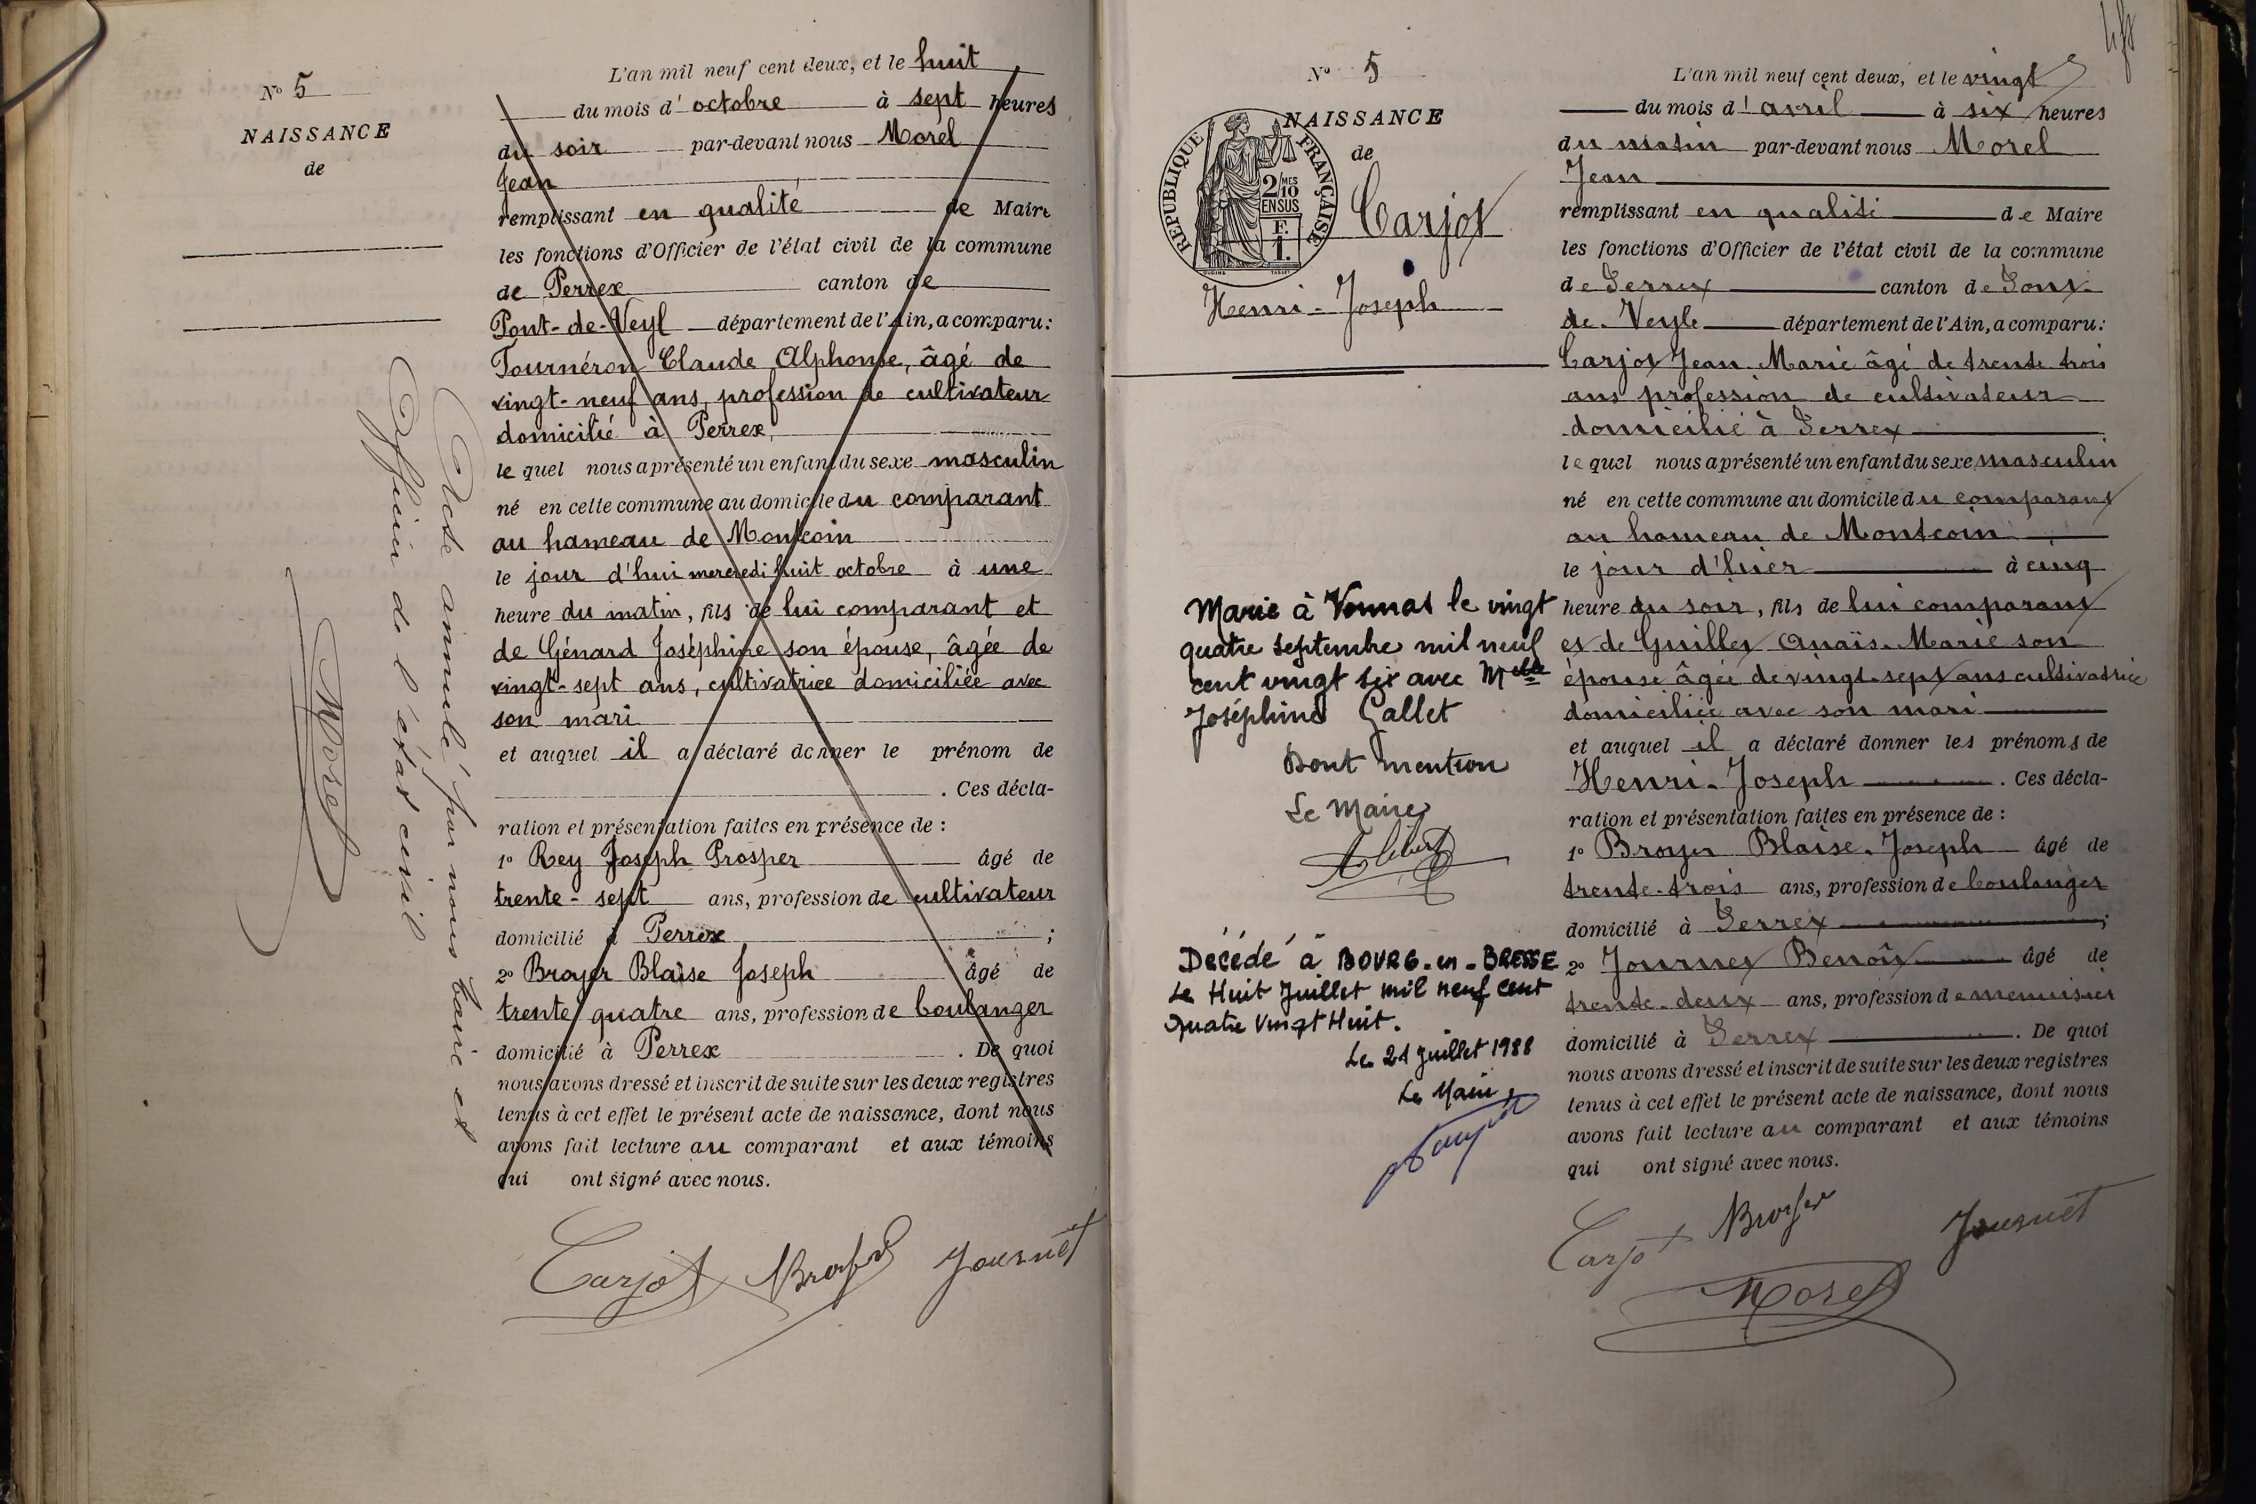 N° 5
NAISSANCE
de
Acte annulé par nous Maire et
Officier de l'état civil
Morel
L'an mil neuf cent deux, et le huit
du mois d'octobre à sept heures
du soir par-devant nous Morel
Jean
remplissant en qualité de Maire
les fonctions d'Officier de l'état civil de la commune
de Perrex canton de
Pont-de-Veyl département de l'Ain, a comparu:
Tournéron Claude Alphonse, âgé de
vingt-neuf ans, profession de cultivateur
domicilié à Perrex,
le quel nous a présenté un enfant du sexe masculin
né en cette commune au domicile du comparant
au hameau de Montcoin
le jour d'hui mercredi huit octobre à une
heure du matin, fils de lui comparant et
de Génard Joséphine son épouse, âgée de
vingt-sept ans, cultivatrice domiciliée avec
son mari
et auquel il a déclaré donner le prénom de
. Ces décla-
ration et présentation faites en présence de :
1° Rey Joseph Prosper âgé de
trente-sept ans, profession de cultivateur
domicilié à Perrex ;
2° Broyer Blaise Joseph âgé de
trente quatre ans, profession de boulanger
domicilié à Perrex . De quoi
nous avons dressé et inscrit de suite sur les deux registres
tenus à cet effet le présent acte de naissance, dont nous
avons fait lecture au comparant et aux témoins
qui ont signé avec nous.
Carjot Broyer Journet
N° 5
NAISSANCE
de
RÉPUBLIQUE FRANÇAISE
2/10 MES
EN SUS
F.
1.
Carjot
Henri-Joseph
Marié à Vonnas le vingt
quatre septembre mil neuf
cent vingt six avec Melle
Joséphine Gallet
Dont mention
Le Maire
Décédé à BOURG-en-BRESSE
Le Huit Juillet mil neuf cent
Quatre Vingt Huit.
Le 21 juillet 1988
Le Maire,
L'an mil neuf cent deux, et le vingt
du mois d'avril à six heures
du matin par-devant nous Morel
Jean
remplissant en qualité de Maire
les fonctions d'Officier de l'état civil de la commune
de Perrex canton de Pont-
de-Veyle département de l'Ain, a comparu:
Carjot Jean-Marie âgé de trente trois
ans profession de cultivateur
domicilié à Perrex
le quel nous a présenté un enfant du sexe masculin
né en cette commune au domicile du comparant
au hameau de Montcoin
le jour d'hier à cinq
heure du soir, fils de lui comparant
et de Guillet Anaïs-Marie son
épouse âgée de vingt-sept ans cultivatrice
domiciliée avec son mari
et auquel il a déclaré donner les prénoms de
Henri-Joseph . Ces décla-
ration et présentation faites en présence de :
1° Broyer Blaise-Joseph âgé de
trente-trois ans, profession de boulanger
domicilié à Perrex ;
2° Journet Benoît âgé de
trente-deux ans, profession de menuisier
domicilié à Perrex . De quoi
nous avons dressé et inscrit de suite sur les deux registres
tenus à cet effet le présent acte de naissance, dont nous
avons fait lecture au comparant et aux témoins
qui ont signé avec nous.
Carjot Broyer Journet
Morel